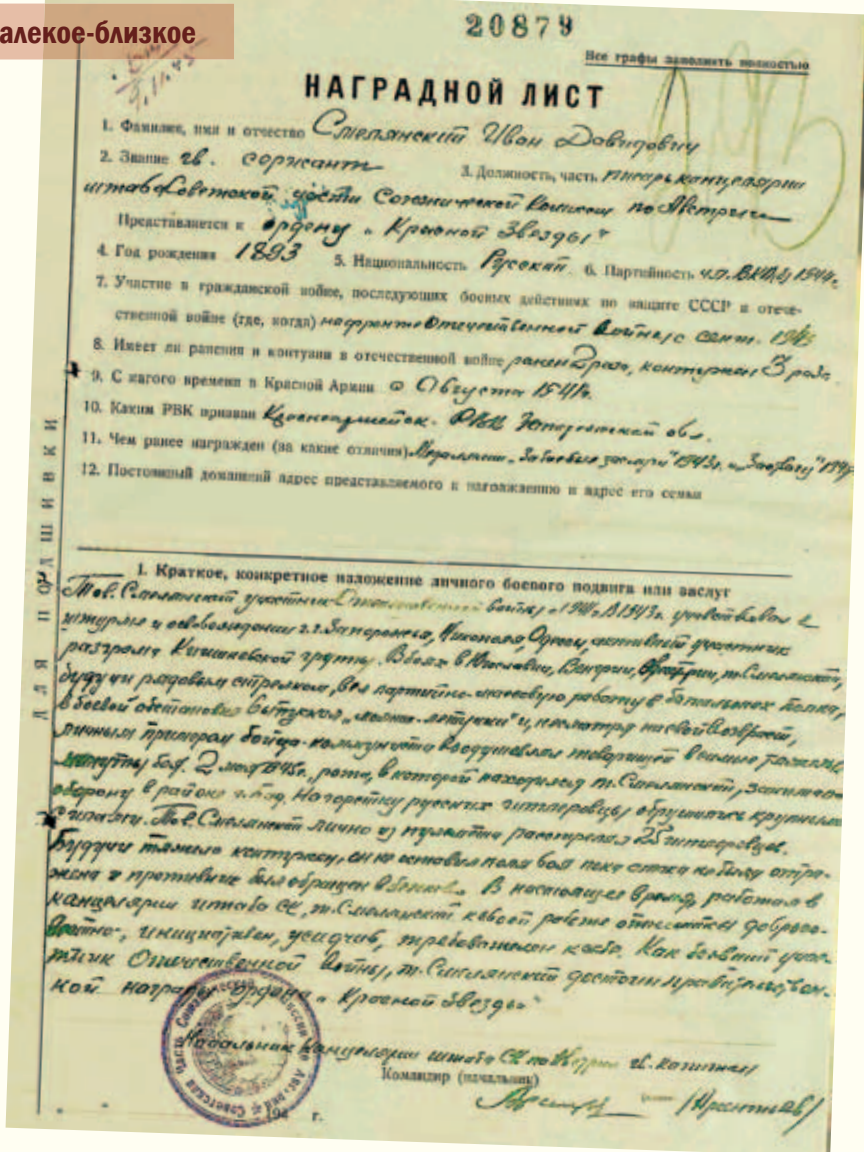 алекое-близкое
20879
Все графы заполнить полностью
НАГРАДНОЙ ЛИСТ
1. Фамилия, имя и отчество Смелянский Иван Давидович
2. Звание гв. сержант 3. Должность, часть писарь канцелярии
штаба Советской части Союзнической Комиссии по Австрии
Представляется к ордену „Красной Звезды"
4. Год рождения 1893 5. Национальность Русский 6. Партийность чл. ВКП(б) 1944г.
7. Участие в гражданской войне, последующих боевых действиях по защите СССР и отече-
ственной войне (где, когда) на фронте Отечественной войны с сент. 1943
8. Имеет ли ранения и контузии в отечественной войне ранен 2 раза, контужен 3 раза
9. С какого времени в Красной Армии с Августа 1941г.
10. Каким РВК призван Красноармейск. РВК Запорожской обл.
11. Чем ранее награжден (за какие отличия) Медалями „За боевые заслуги" 1943г. „За отвагу"
12. Постоянный домашний адрес представляемого к награждению и адрес его семьи
ДЛЯ ПОДШИВКИ
I. Краткое, конкретное изложение личного боевого подвига или заслуг
Тов. Смелянский участник Отечественной войны с 1941г. В 1943г. участвовал в
штурме и освобождении г.г. Запорожья, Никополя, Одессы, активный участник
разгрома Кишиневской группы. В боях в Югославии, Венгрии, Австрии, т. Смелянский,
будучи рядовым стрелком, вел партийно-массовую работу в батальонах полка,
в боевой обстановке выпускал „молнии-летучки" и, несмотря на свой возраст,
личным примером бойца-коммуниста воодушевлял товарищей в самые тяжелые
минуты боя. 2 мая 1945г. рота, в которой находился т. Смелянский, занимала
оборону в районе На горстку русских гитлеровцы обрушились крупными
силами. Тов. Смелянский лично из пулемета расстрелял 25 гитлеровцев.
Будучи тяжело контужен, он не оставил поля боя пока атака не была отра-
жена и противник был обращен в бегство. В настоящее время, работая в
канцелярии штаба СЧ, т. Смелянский к своей работе относится добросо-
вестно, инициативен, усидчив, требователен к себе. Как бывший учас-
тник Отечественной Войны, т. Смелянский достоин правительствен-
ной награды ордена „Красной Звезды"
Начальник Канцелярии штаба СЧ по Австрии капитан
Командир (начальник)
194 г.